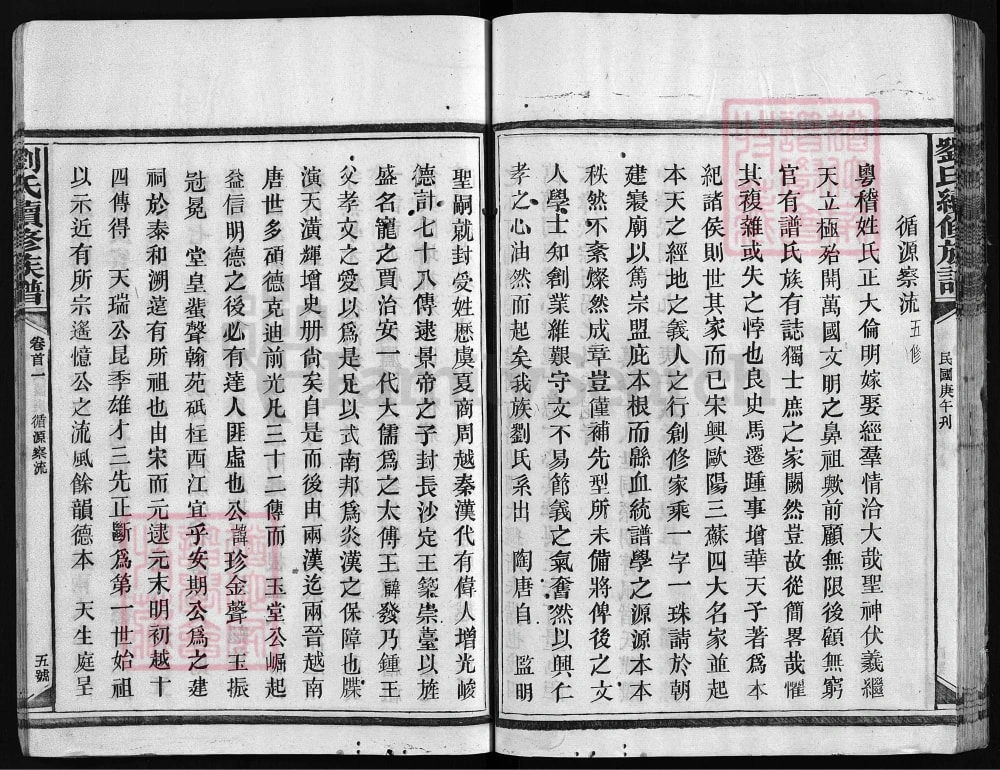 劉氏續修族譜
民國庚午刋
循源察流 五修
粵稽姓氏正大倫明嫁娶經羣情洽大哉聖神伏羲繼
天立極殆開萬國文明之鼻祖歟前顧無限後顧無窮
官有譜氏族有誌獨士庶之家闕然豈故從簡畧哉懼
其複雜或失之悖也良史馬遷踵事增華天子著爲本
紀諸侯則世其家而已宋興歐陽三蘇四大名家並起
本天之經地之義人之行創修家乘一字一珠請於朝
建寢廟以篤宗盟庇本根而緜血統譜學之源源本本
秩然不紊燦然成章豈僅補先型所未備將俾後之文
人學士知創業維艱守文不易節義之氣奮然以興仁
孝之心油然而起矣我族劉氏系出 陶唐自 監明
聖嗣就封受姓歷虞夏商周越秦漢代有偉人增光峻
德計七十八傳逮景帝之子封長沙定王築崇臺以旌
盛名寵之賈治安一代大儒爲之太傅王諱發乃鍾王
父孝文之愛以爲是足以式南邦爲炎漢之保障也牒
演天潢輝增史册尙矣自是而後由兩漢迄兩晉越南
唐世多碩德克迪前光凡三十二傳而 玉堂公崛起
益信明德之後必有達人匪虛也公諱珍金聲 玉振
冠冕 堂皇蜚聲翰苑砥柱西江宜乎安期公爲之建
祠於泰和溯達有所祖也由宋而元逮元末明初越十
四傳得 天瑞公昆季雄才三先正斷爲第一世始祖
以示近有所宗遙憶公之流風餘韻德本 天生庭呈
劉氏續修族譜
卷首一
循源察流
五號
FamilySearch